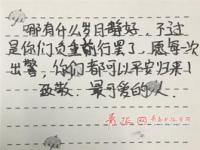 哪有什么岁月静好，不过
是你们负重前行罢了，愿每一次
出警，你们都可以平安归来！
致敬 最可爱的人